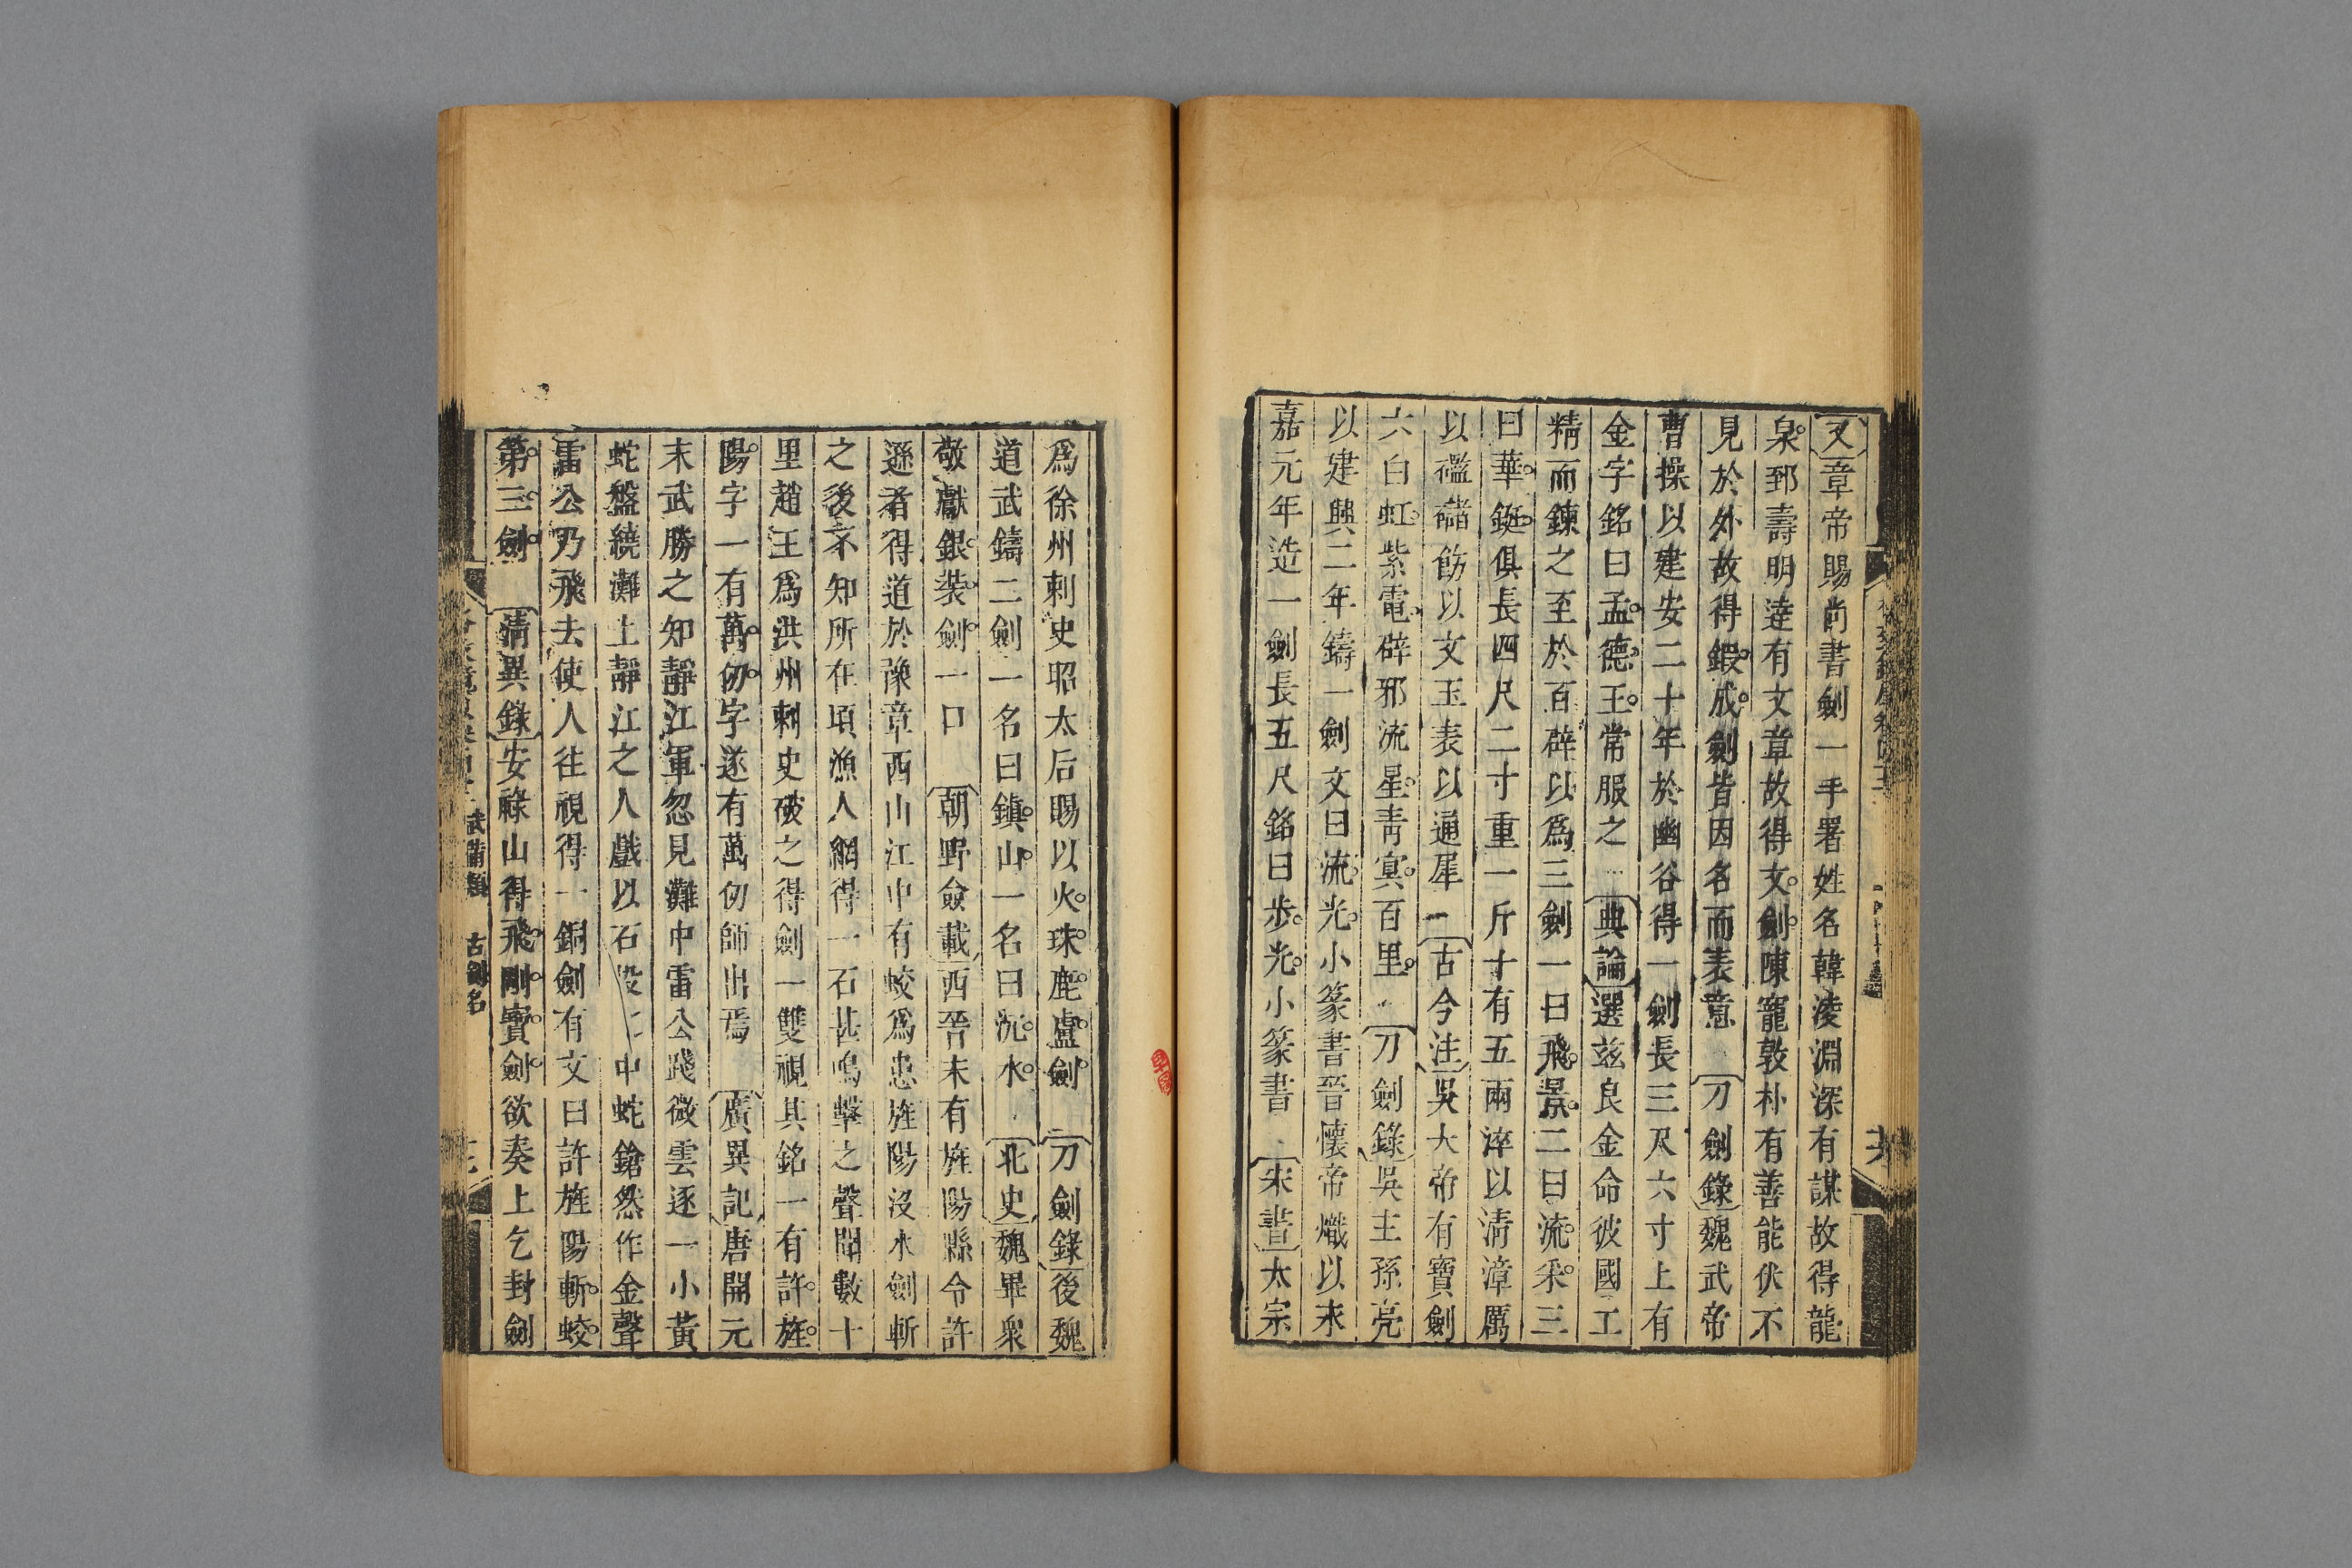 又章帝賜尚書劍一手署姓名韓淩淵深有謀故得龍
泉郅壽明達有文章故得文劍陳寵敦朴有善能伏不
見於外故得鍛成劍皆因名而表意　刀劍錄魏武帝
曹操以建安二十年於幽谷得一劍長三尺六寸上有
金字銘曰孟德王常服之　典論選茲良金命彼國工
精而鍊之至於百辟以爲三劍一曰飛景二曰流采三
曰華鋌俱長四尺二寸重一斤十有五兩淬以清漳厲
以礛䃴飾以文玉表以通犀　古今注吳大帝有寶劍
六白虹紫電辟邪流星青寞百里　刀劍錄吳主孫亮
以建興二年鑄一劍文曰流光小篆書晉懷帝熾以未
嘉元年造一劍長五尺銘曰步光小篆書　宋書太宗
爲徐州刺史昭太后賜以火珠鹿盧劍　刀劍錄後魏
道武鑄二劍一名曰鎭山一名曰沉水　北史魏畢衆
敬獻銀裝劍一口　朝野僉載西晉末有旌陽縣令許
遜者得道於豫章西山江中有蛟爲患旌陽沒水劍斬
之後不知所在頃漁人網得一石甚鳴擊之聲聞數十
里趙王爲洪州刺史破之得劍一雙視其銘一有許旌
陽字一有萬仞字遂有萬仞師出焉　廣異記唐開元
末武勝之知靜江軍忽見灘中雷公踐微雲逐一小黃
蛇盤繞灘上靜江之人戲以石投之中蛇鎗然作金聲
雷公乃飛去使人往視得一銅劍有文曰許旌陽斬蛟
第三劍　清異錄安祿山得飛剛寶劍欲奏上乞封劍
武備類　古劍名